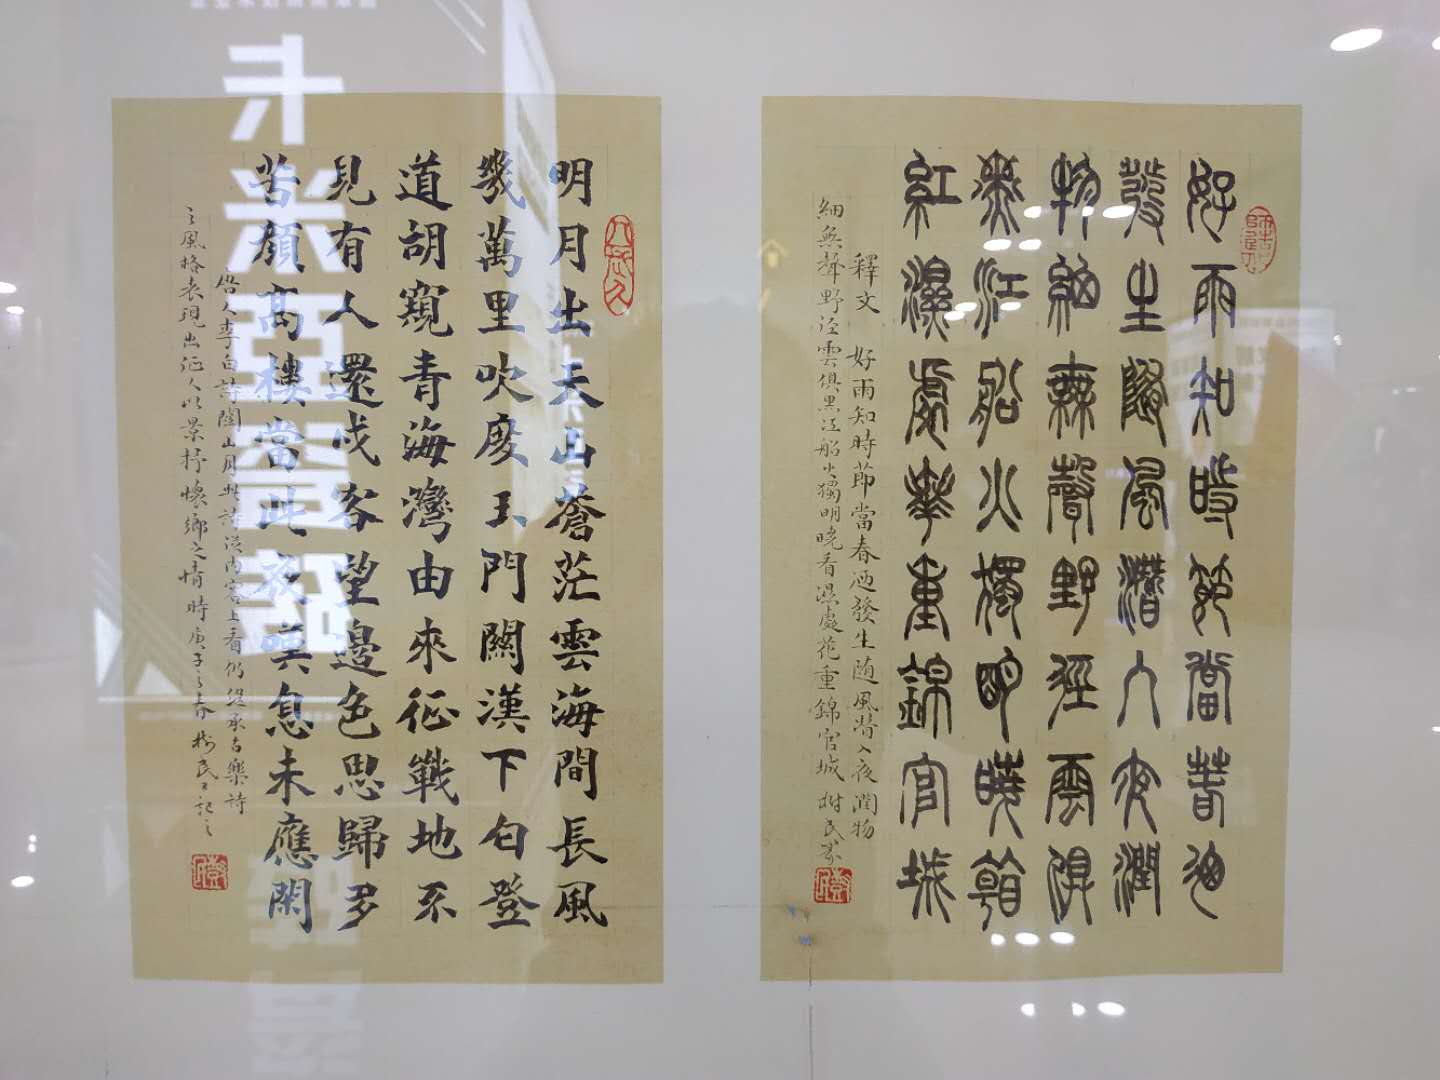 好雨知時節當春迺
發生隨風潛入夜潤
物細無聲野徑雲俱
黑江船火獨明曉看
紅濕處華重錦官城
釋文 好雨知時節當春迺發生随風潜入夜潤物
細無聲野径雲俱黑江船火獨明曉看濕處花重錦官城 樹民篆
明月出天山蒼茫雲海間長風
幾萬里吹度玉門關漢下白登
道胡窺青海灣由來征戰地不
見有人還戍客望邊色思歸多
苦顏高樓當此夜嘆息未應閑
唐人李白詩關山月此詩從内容上看仍繼承古樂詩
之風格表現出征人以景抒懷鄉之情時庚子之春樹民記之